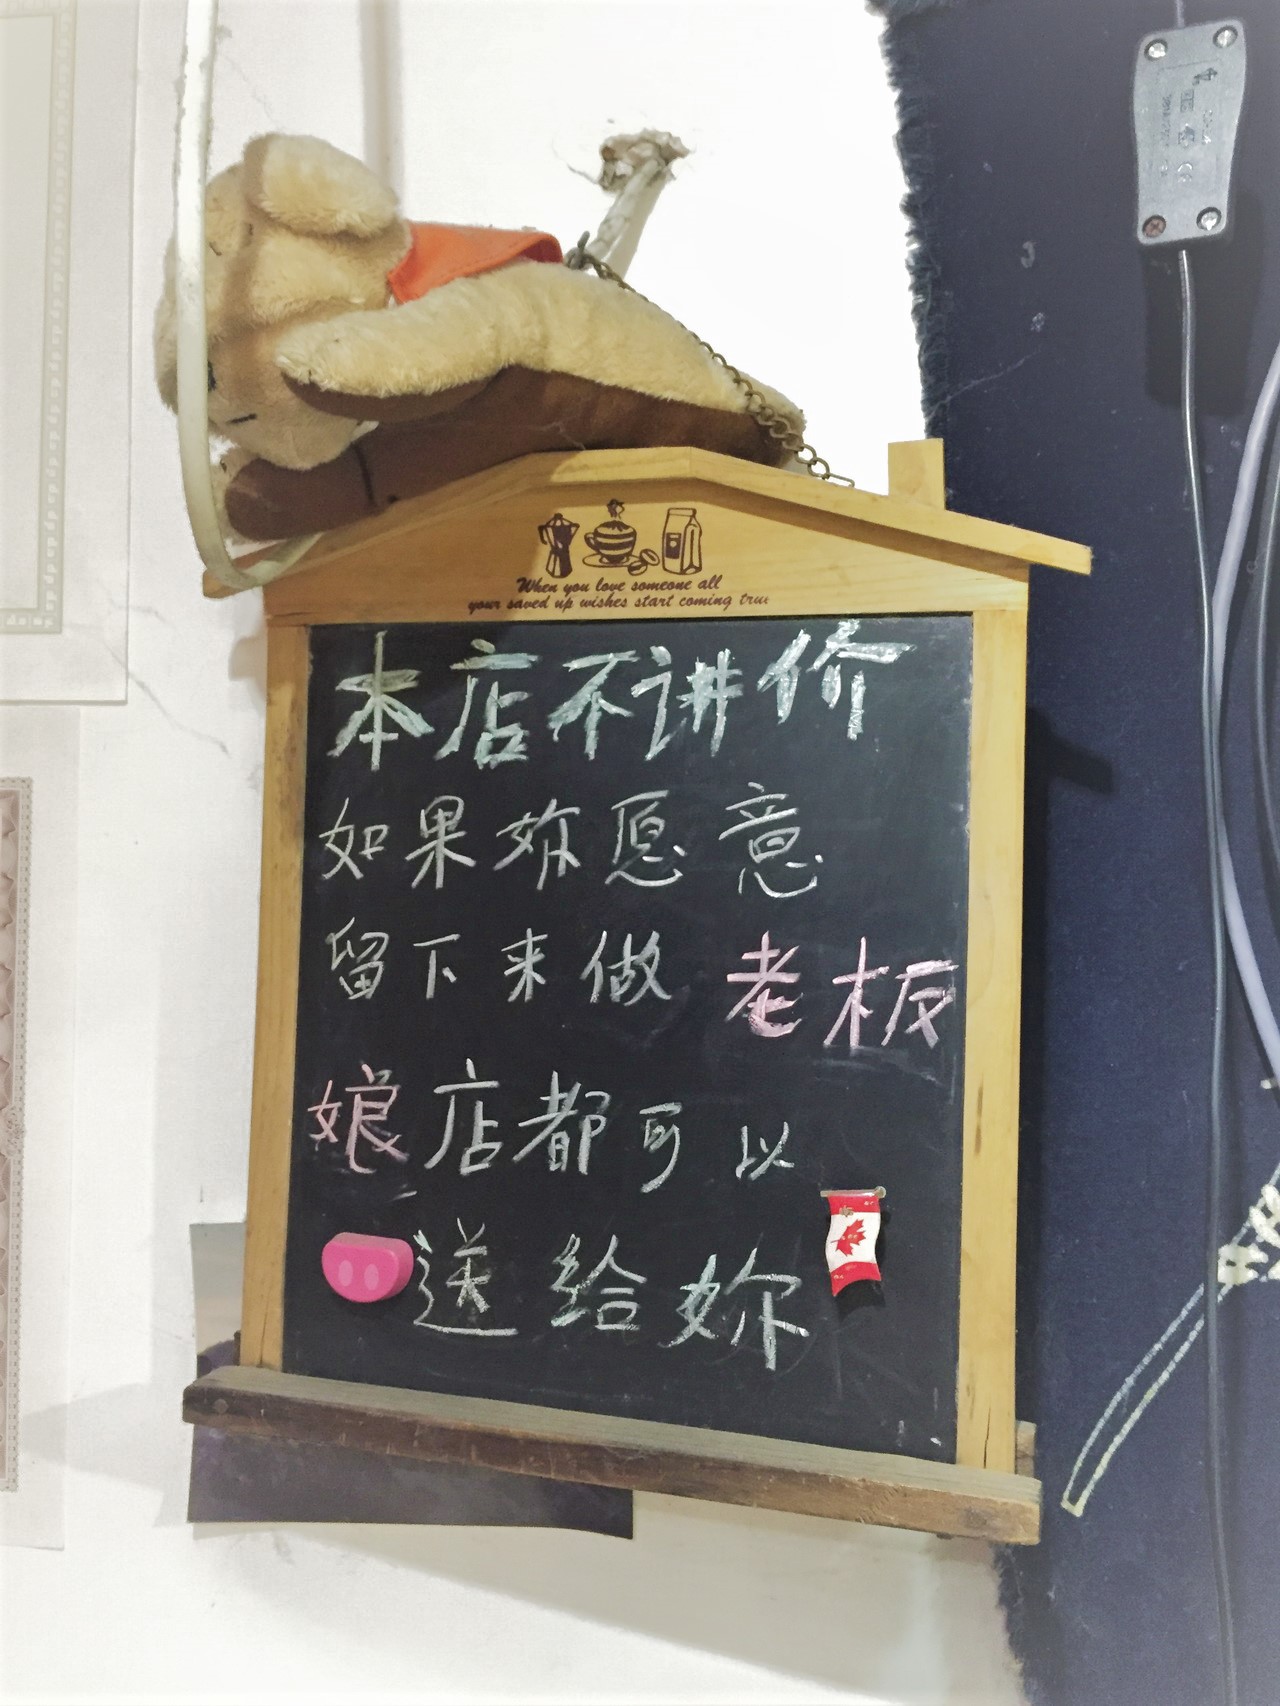 When you love someone all
your saved up wishes start coming true
本店不讲价
如果妳愿意
留下来做老板
娘店都可以
送给妳